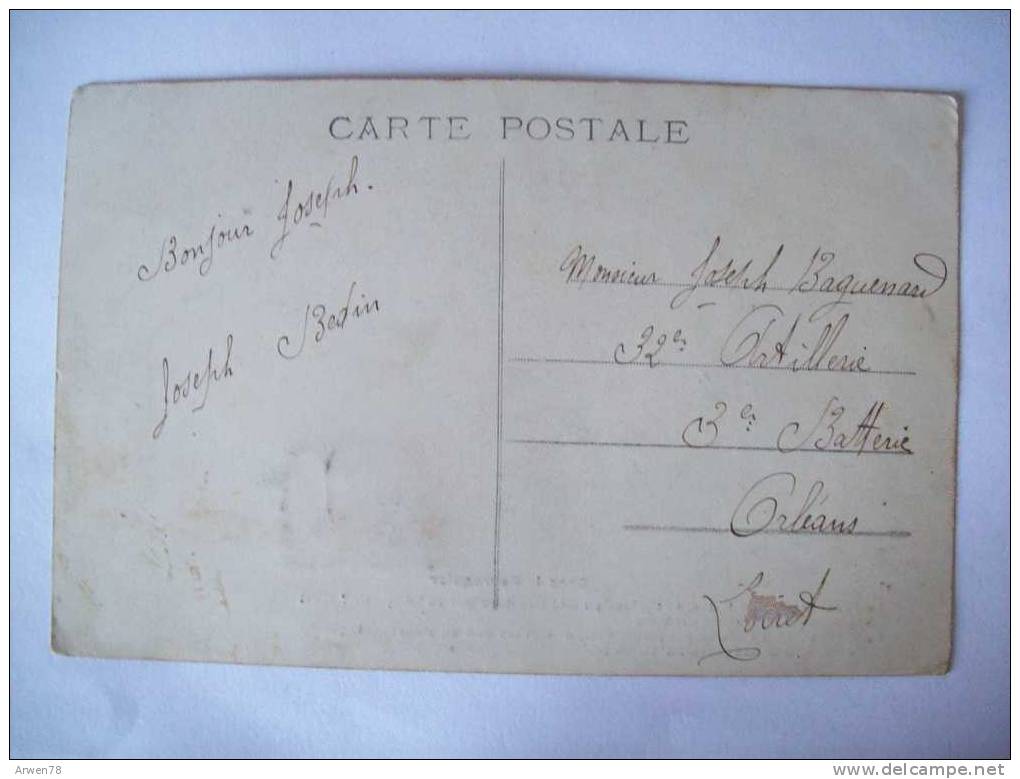 CARTE POSTALE
Bonjour Joseph.
Joseph Bertin
Monsieur Joseph Baguenard
32e Artillerie
3e Batterie
Orléans
Loiret
Arwen78
www.delcampe.net